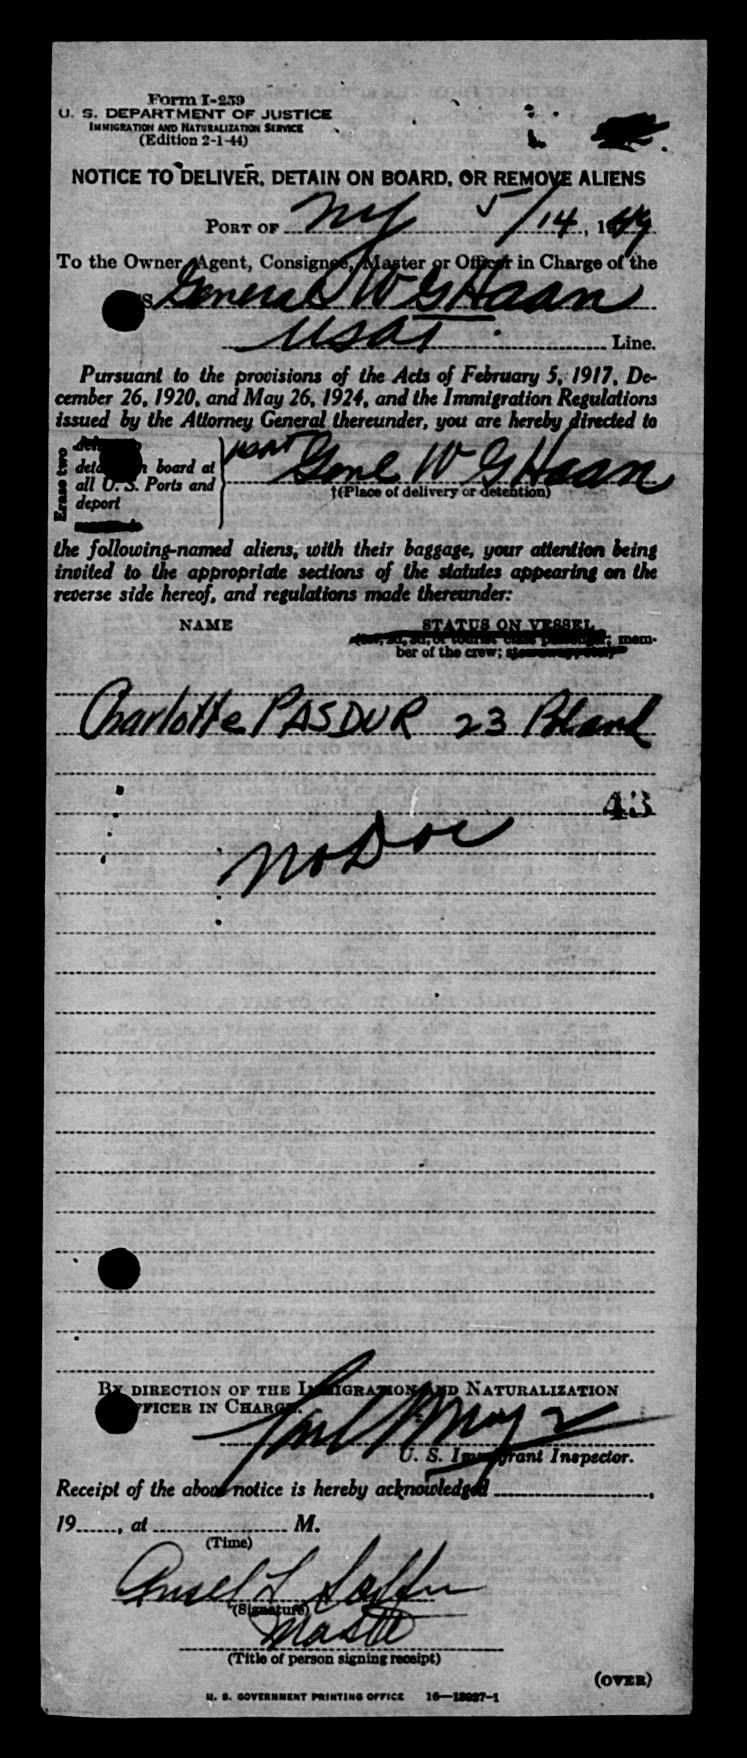 Form I-259
U. S. DEPARTMENT OF JUSTICE
IMMIGRATION AND NATURALIZATION SERVICE
(Edition 2-1-44)
NOTICE TO DELIVER, DETAIN ON BOARD, OR REMOVE ALIENS
PORT OF NY 5/14, 1949
To the Owner, Agent, Consignee, Master or Officer in Charge of the
General W G Haan
USAT Line.
Pursuant to the provisions of the Acts of February 5, 1917, De-
cember 26, 1920, and May 26, 1924, and the Immigration Regulations
issued by the Attorney General thereunder, you are hereby directed to
Erase two
board at
all U. S. Ports and
deport
USAT Gene W G Haan
†(Place of delivery or detention)
the following-named aliens, with their baggage, your attention being
invited to the appropriate sections of the statutes appearing on the
reverse side hereof, and regulations made thereunder:
NAME STATUS ON VESSEL
mem-
ber of the crew;
Charlotte PASDUR 23 Poland
43
No Doc
BY DIRECTION OF THE IMMIGRATION AND NATURALIZATION
OFFICER IN CHARGE.
U. S. Immigrant Inspector.
Receipt of the above notice is hereby acknowledged
19, at M.
(Time)
Ansel L
(Signature)
Master
(Title of person signing receipt)
(OVER)
U. S. GOVERNMENT PRINTING OFFICE 16—13027-1